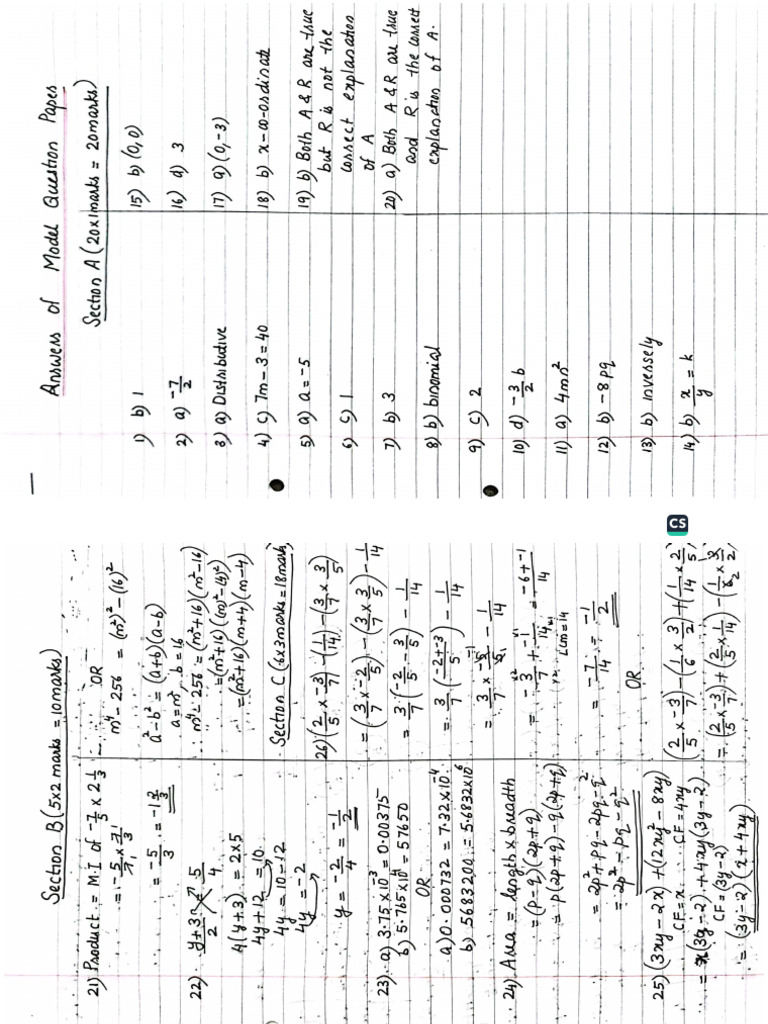 Answers of Model Question Paper
Section A (20x1marks = 20marks)
1) b) 1
2) a) -7/2
3) a) Distributive
4) c) 7m-3=40
5) a) a=-5
6) c) 1
7) b) 3
8) b) binomial
9) c) 2
10) d) -3/2 b
11) a) 4mn²
12) b) -8pq
13) b) inversely
14) b) x/y = k
15) b) (0,0)
16) d) 3
17) a) (0,-3)
18) b) x-co-ordinate
19) b) Both A & R are true
but R is not the
correct explanation
of A
20) a) Both A & R are true
and R is the correct
explanation of A.
CS
Section B (5x2 marks = 10marks)
21) Product = M.I of -7/5 x 2 1/3
= -5/7 x 7/3
= -5/3 = -1 2/3
OR
m⁴-256 = (m²)²-(16)²
a²-b² = (a+b)(a-b)
a=m², b=16
m⁴-256 = (m²+16)(m²-16)
=(m²+16)(m²-4²)
=(m²+16)(m+4)(m-4)
22) y+3/2 = 5/4
4(y+3) = 2x5
4y+12 = 10
4y = 10-12
4y = -2
y = -2/4 = -1/2
23) a) 3.75x10⁻³ = 0.00375
b) 5.765x10⁴ = 57650
OR
a) 0.000732 = 7.32x10⁻⁴
b) 5683200 = 5.6832x10⁶
24) Area = length x breadth
= (p-q)(2p+q)
= p(2p+q)-q(2p+q)
= 2p²+pq-2pq-q²
= 2p²-pq-q²
25) (3xy-2x)+(12xy²-8xy)
CF=x CF=4xy
= x(3y-2)+4xy(3y-2)
CF=(3y-2)
= (3y-2)(x+4xy)
Section C (6x3marks=18marks)
26) (2/5 x -3/7)-(1/14)-(3/7 x 3/5)
= (3/7 x -2/5)-(3/7 x 3/5)-1/14
= 3/7 (-2/5 - 3/5) - 1/14
= 3/7 (-2+-3/5) - 1/14
= 3/7 x -5/5 - 1/14
= -3/7 + -1/14 = -6+-1/14
LCM=14
= -7/14 = -1/2
OR
(2/5 x -3/7)-(1/6 x 3/2)+(1/14 x 2/5)
= (2/5 x -3/7)+(2/5 x 1/14)-(1/6 x 3/2)